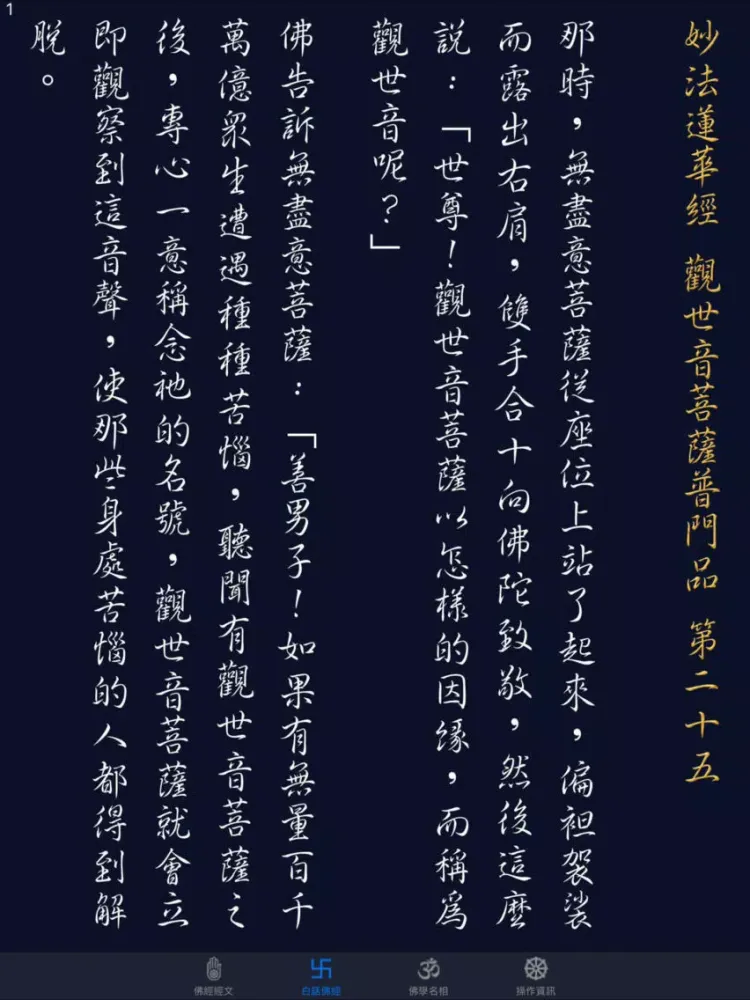 1
妙法蓮華經 觀世音菩薩普門品 第二十五
那時，無盡意菩薩從座位上站了起來，偏袒袈裟
而露出右肩，雙手合十向佛陀致敬，然後這麼
説：「世尊！觀世音菩薩以怎樣的因緣，而稱為
觀世音呢？」
佛告訴無盡意菩薩：「善男子！如果有無量百千
萬億眾生遭遇種種苦惱，聽聞有觀世音菩薩之
後，專心一意稱念祂的名號，觀世音菩薩就會立
即觀察到這音聲，使那些身處苦惱的人都得到解
脫。
佛經經文
白話佛經
佛學名相
操作資訊